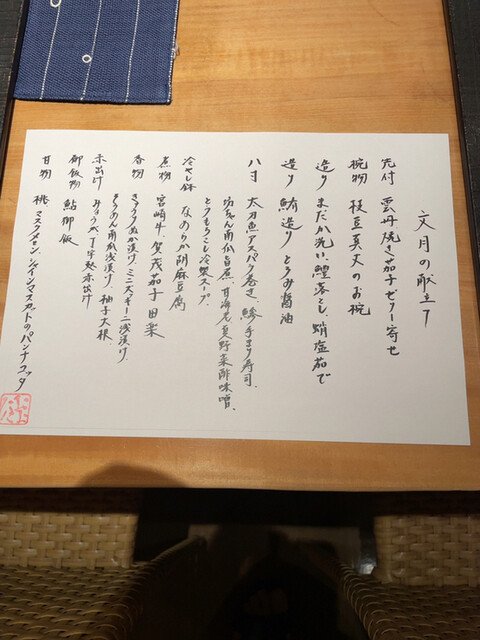 文月の献立
先付 雲丹、焼き茄子ゼリー寄せ
椀物 枝豆真丈のお椀
造り まだか洗い、鱧落とし、蛸塩茹で
造り 鮪造り とろみ醤油
八寸 太刀魚アスパラ巻き、鯵手まり寿司、
坊ちゃん南瓜旨煮 甘海老夏野菜酢味噌、
とうもろこし冷製スープ、
冷やし鉢 なめらか胡麻豆腐
煮物 宮崎牛、賀茂茄子田楽
香物 きゅうりぬか漬け、ミニズッキーニ浅漬け、
そうめん南瓜浅漬け、柚子大根
赤出汁 みょうが 丁字麩赤出汁
御飯物 鮎御飯
甘物 桃、マスクメロン、シャインマスカットのパンナコッタ